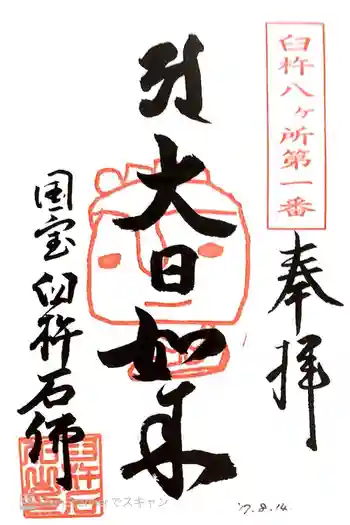 臼杵八ヶ所第一番
奉拝
大日如来
国宝臼杵石佛
'17.8.14
でスキャン